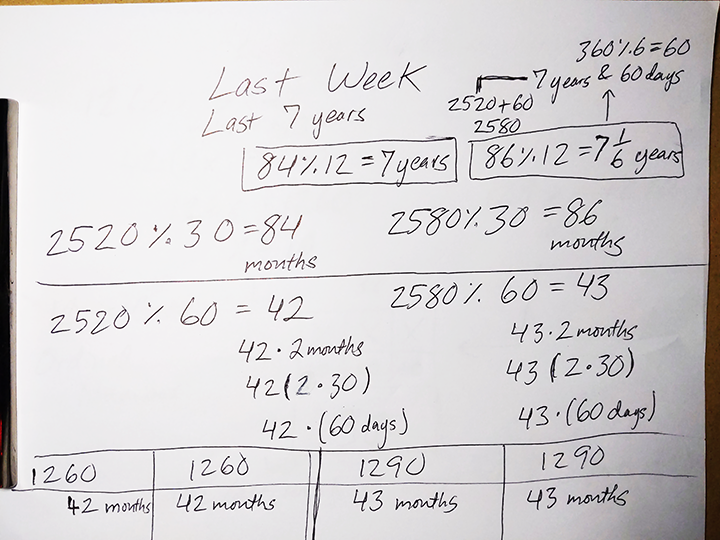 Last Week
Last 7 years
360 ٪ 6 = 60
7 years & 60 days
2520 + 60
2580
84 ٪ 12 = 7 years
86 ٪ 12 = 7 1/6 years
2520 ٪ 30 = 84
months
2580 ٪ 30 = 86
months
2520 ٪ 60 = 42
42 · 2 months
42 (2 · 30)
42 · (60 days)
2580 ٪ 60 = 43
43 · 2 months
43 (2 · 30)
43 · (60 days)
1260 1260 1290 1290
42 months 42 months 43 months 43 months